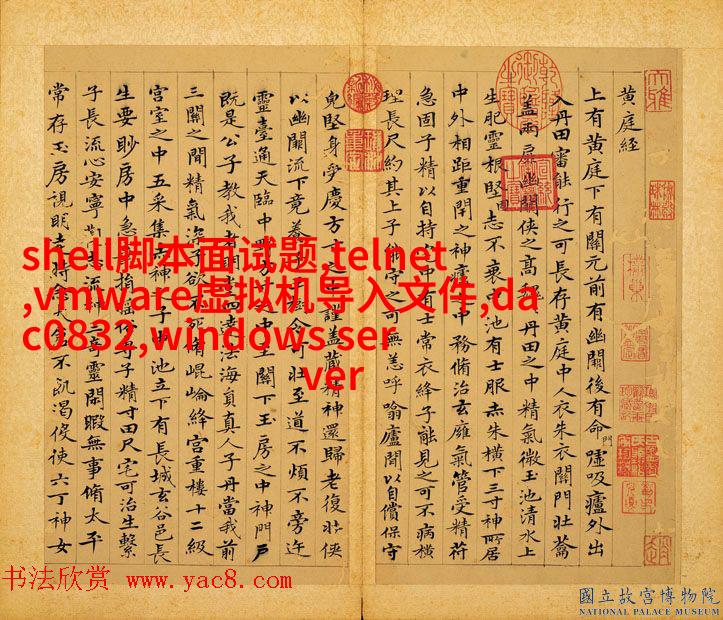 黄庭經
上有黄庭下有關元前有幽闕後有命門嘘吸廬外出
入丹田審能行之可長存黄庭中人衣朱衣關門壯蘥
蓋兩扉幽闕俠之高巍丹田之中精氣微玉池清水上
生肥靈根堅固志不衰中池有士服赤朱橫下三寸神所居
中外相距重閇之神廬之中務脩治玄廱氣管受精符
急固子精以自持宅中有士常衣絳子能見之可不病橫
理長尺約其上子能守之可無恙呼噏廬間以自償保守
兒堅身受慶方寸之中謹蓋藏精神還歸老復壯俠
以幽闕流下竟養子玉樹令可壯至道不煩不旁迕
靈臺通天臨中野方寸之中至關下玉房之中神門戶
既是公子教我者明堂四達法海員真人子丹當我前
三關之間精氣深子欲不死脩崐崘絳宫重樓十二級
宫室之中五采集赤神之子中池立下有長城玄谷邑長
生要眇房中急棄捐搖俗專子精寸田尺宅可治生繫
子長流心安寧觀志流神三奇靈閒暇無事脩太平
常存玉房視明達時念大倉不飢渴使六丁神女
shell脚本面试题,telnet
,vmware虚拟机导入文件,da
c0832,windows ser
ver
书法欣赏 www.yac8.com
國立故宮博物院
NATIONAL PALACE MUSEUM